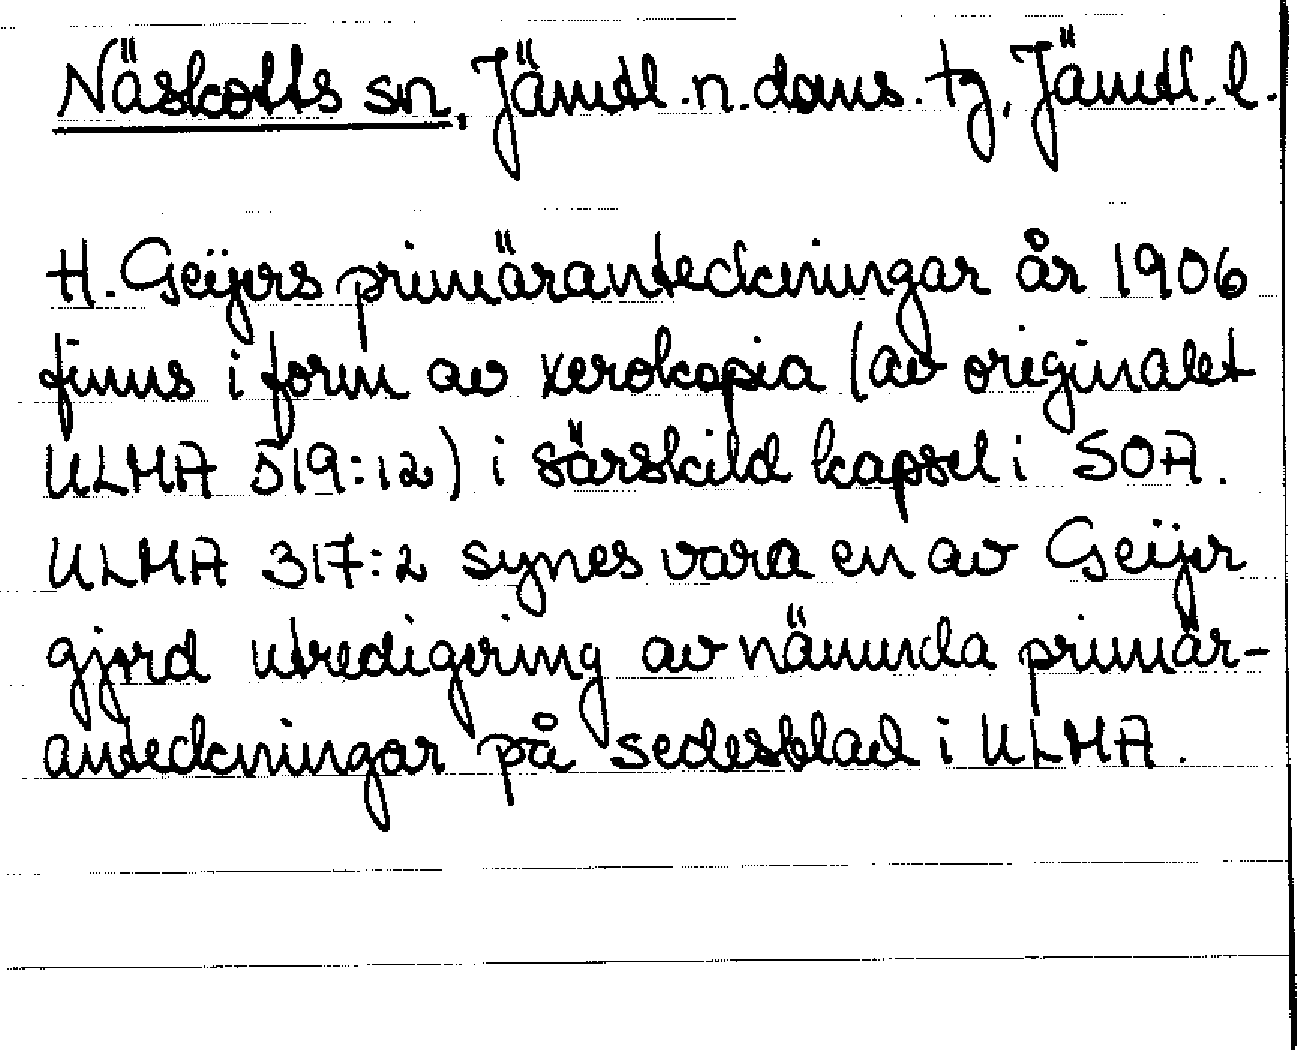 Näskotts sn, Jämtl. n. doms. tg, Jämtl. l.
H. Geijers primäranteckningar år 1906
finns i form av xerokopia (av originalet
ULMA 519:12) i särskild kapsel i SOA.
ULMA 317:2 synes vara en av Geijer
gjord utredigering av nämnda primär-
anteckningar på sedesblad i ULMA.